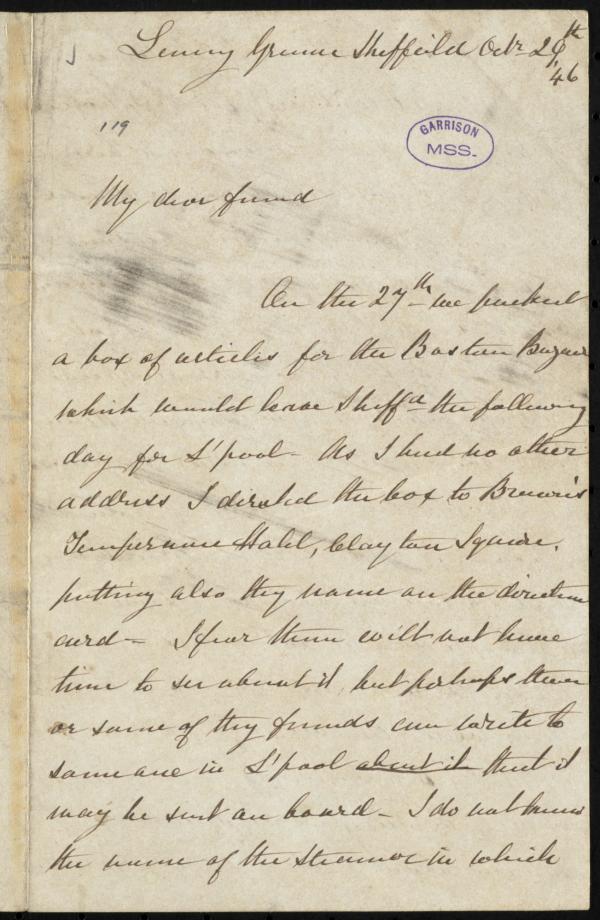 Sheffield Octr 29th
46
119
GARRISON
MSS.
My dear friend
On the 27th we packed
a box of articles for the Boston Bazaar
which would leave Sheffd the following
day for L'pool - As I had no other
address I directed the box to Brown's
Temperance Hotel, Clayton Square,
putting also thy name on the direction
card - I fear thou wilt not have
time to see about it, but perhaps thou
or some of thy friends can write to
some one in L'pool about it that it
may be sent on board - I do not know
the name of the steamer in which